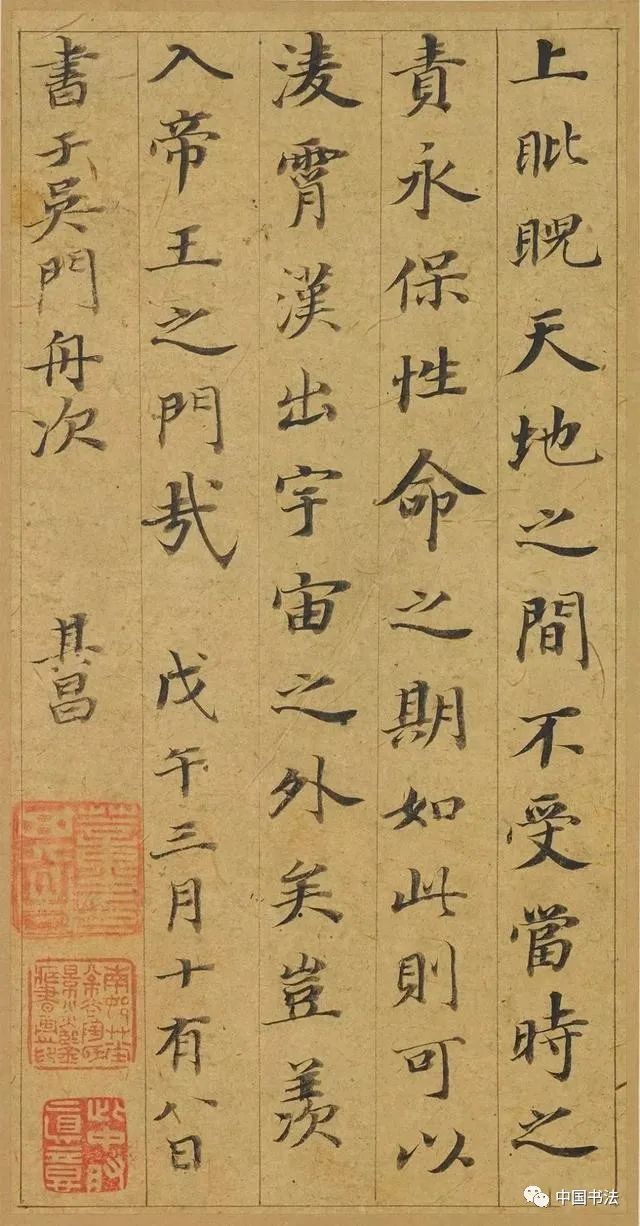 上睥睨天地之間不受當時之
責永保性命之期如此則可以
凌霄漢出宇宙之外矣豈羨
入帝王之門哉 戊午三月十有八日
書于吳門舟次 其昌
此中眞意
中国书法